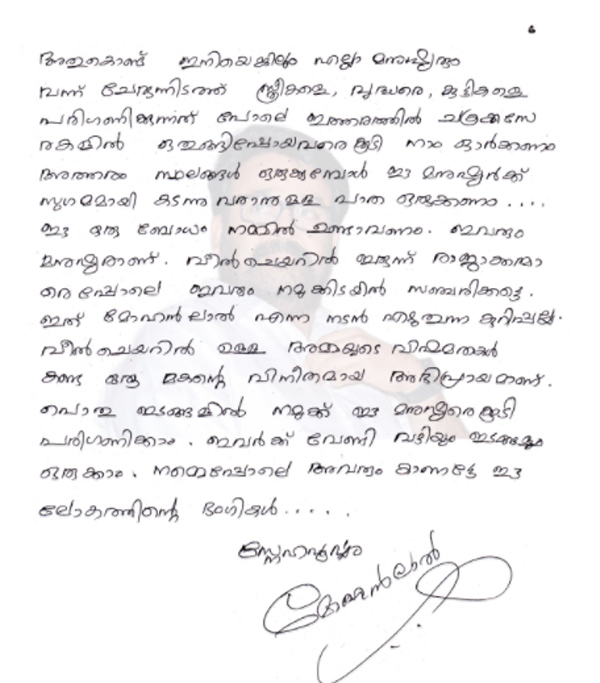 6
അതുകൊണ്ട് ഇനിയെങ്കിലും എല്ലാ മനുഷ്യരും
വന്ന് ചേരുന്നിടത്ത് സ്ത്രീകളെ, വൃദ്ധരെ, കുട്ടികളെ
പരിഗണിക്കുന്നത് പോലെ ഇത്തരത്തിൽ ചക്രക്കസേ
രകളിൽ ഒതുങ്ങിപ്പോയവരെ കൂടി നാം ഓർക്കണം
അത്തരം സ്ഥലങ്ങൾ ഒരുക്കുമ്പോൾ ഈ മനുഷ്യർക്ക്
സുഗമമായി കടന്നു വരാനുള്ള പാത ഒരുക്കണം ....
ഈ ഒരു ബോധം നമ്മിൽ ഉണ്ടാവണം. ഇവരും
മനുഷ്യരാണ്. വീൽചെയറിൽ ഇരുന്ന് രാജാക്കന്മാ
രെ പ്പോലെ ഇവരും നമുക്കിടയിൽ സഞ്ചരിക്കട്ടെ.
ഇത് മോഹൻലാൽ എന്ന നടൻ എഴുതുന്ന കുറിപ്പല്ല.
വീൽചെയറിൽ ഉള്ള അമ്മയുടെ വിഷമതകൾ
കണ്ട ഒരു മകന്റെ വിനീതമായ അഭിപ്രായമാണ്.
പൊതു ഇടങ്ങളിൽ നമുക്ക് ഈ മനുഷ്യരെക്കൂടി
പരിഗണിക്കാം. ഇവർക്ക് വേണ്ടി വഴിയും ഇടങ്ങളും
ഒരുക്കാം. നമ്മെപ്പോലെ അവരും കാണട്ടേ ഈ
ലോകത്തിന്റെ ഭംഗികൾ.....
സ്നേഹപൂർവ്വം
മോഹൻലാൽ